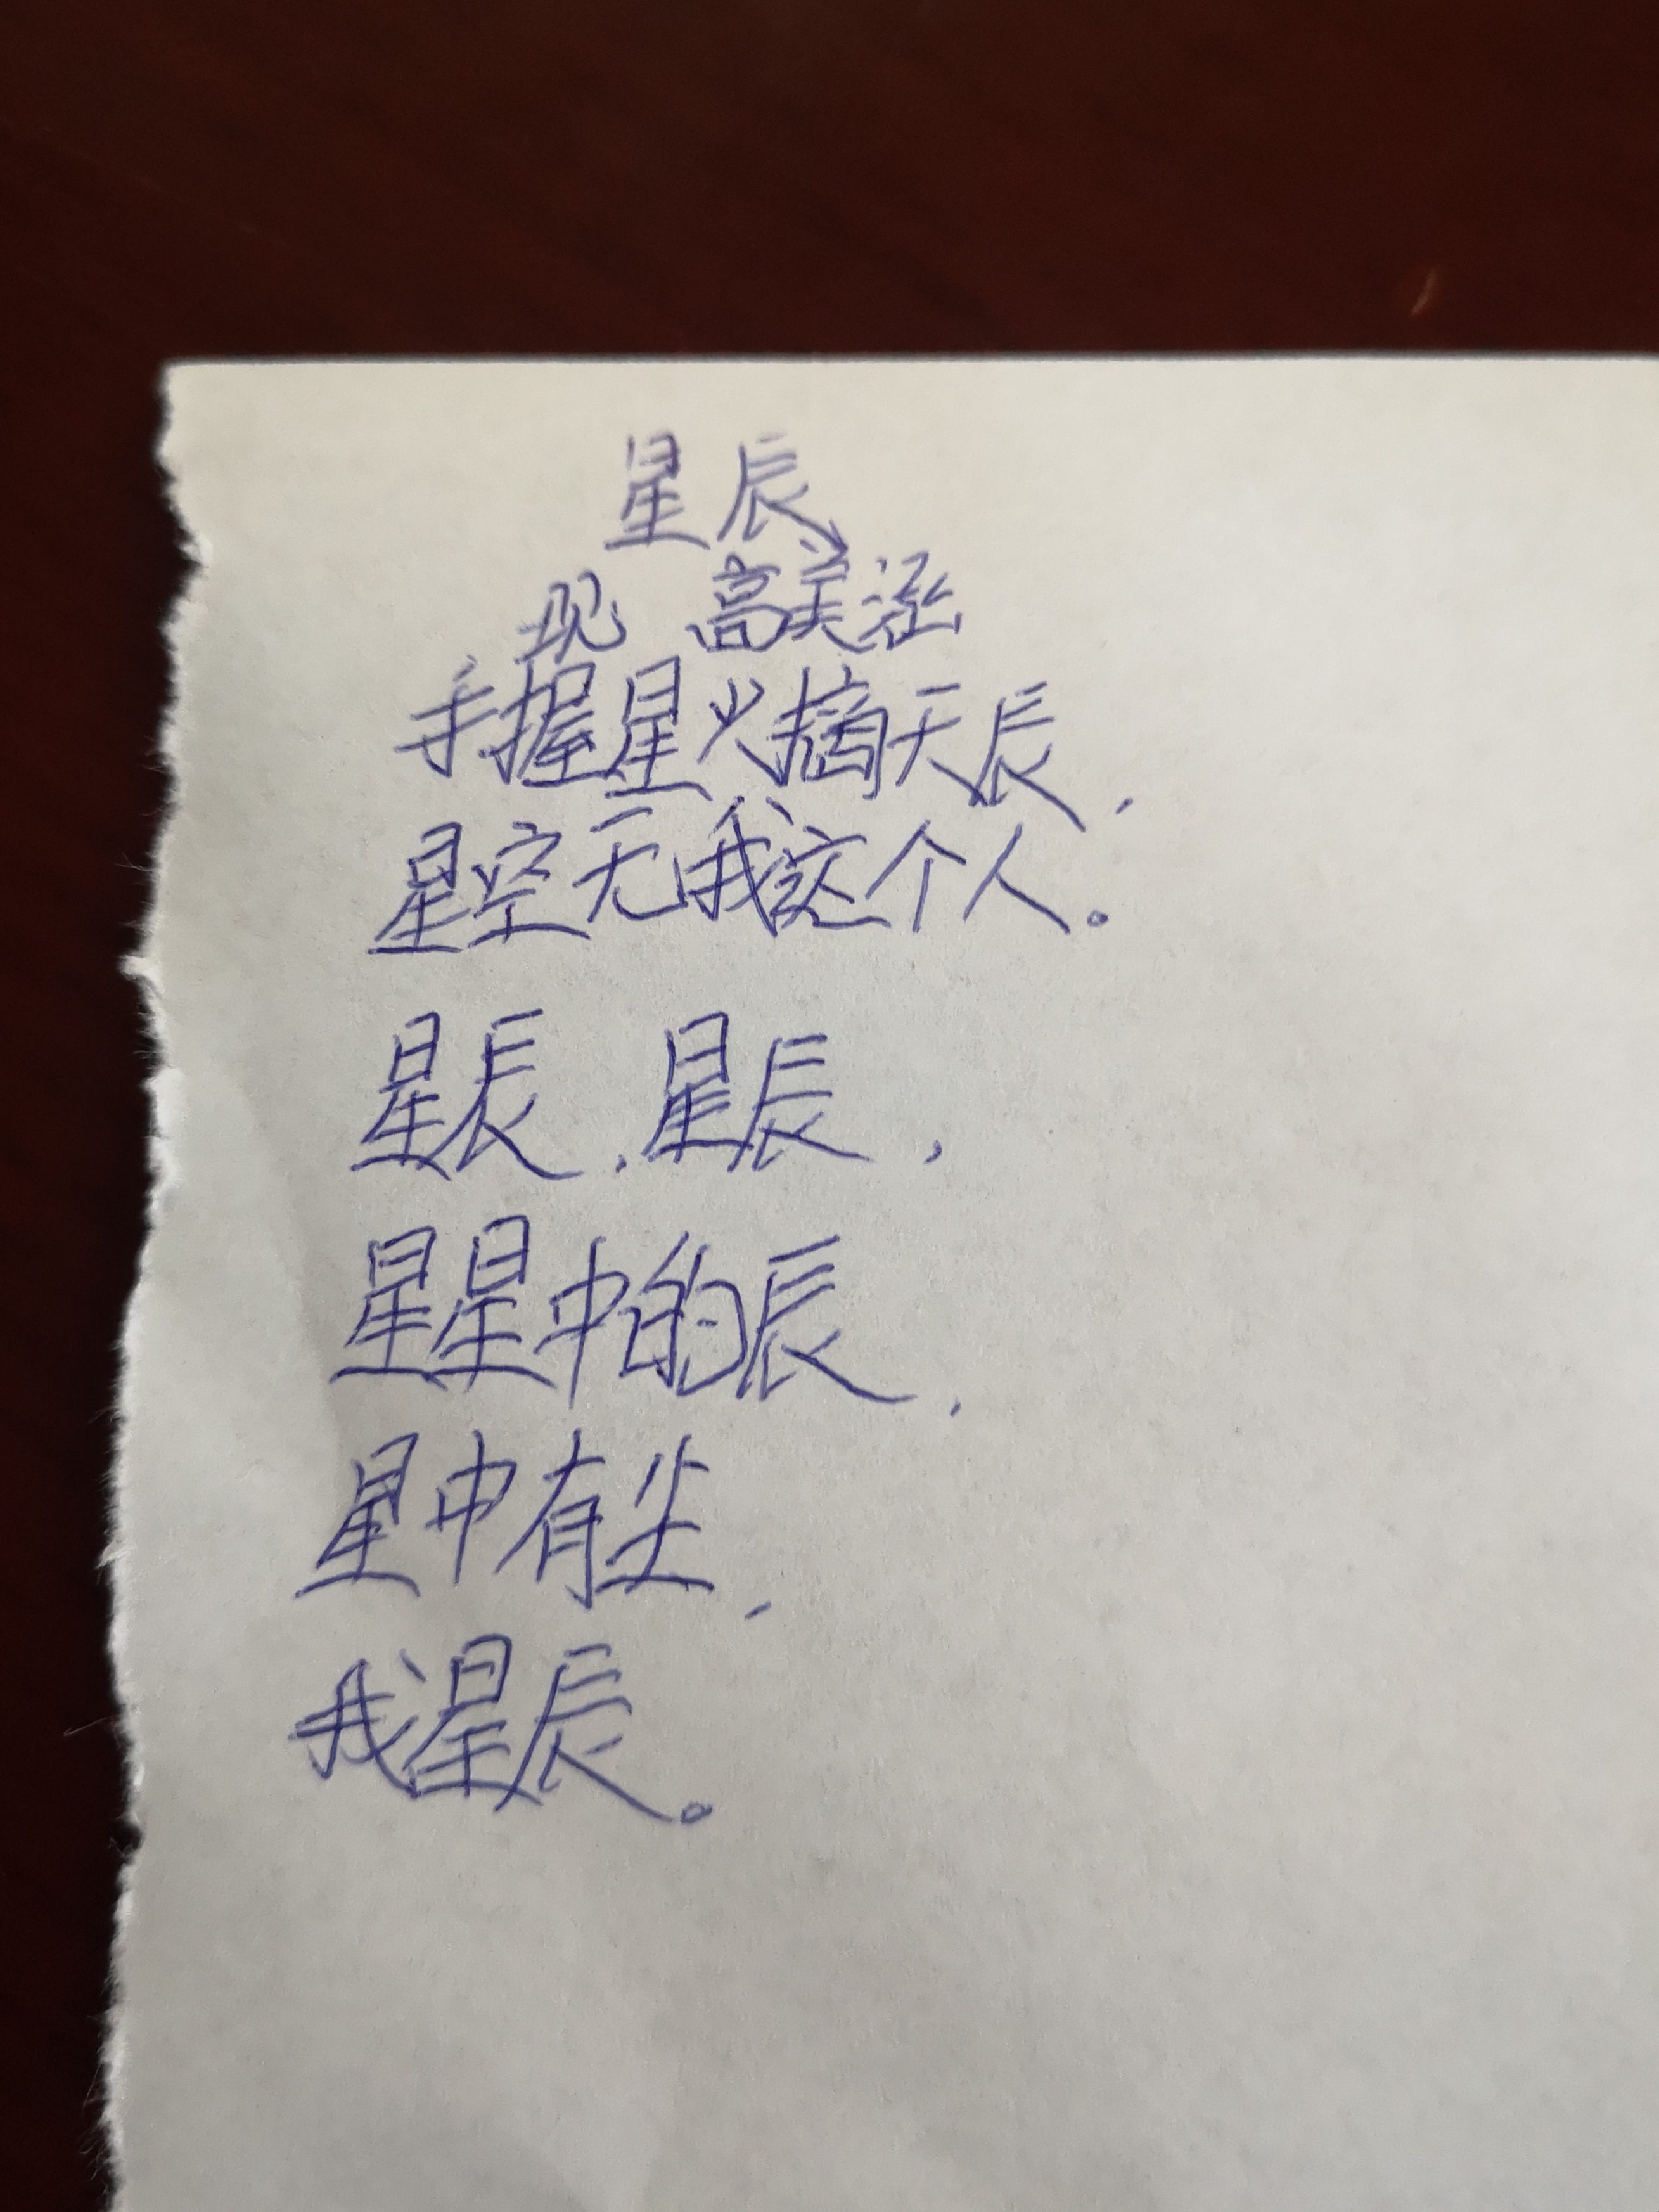 星辰
现 高美涵
手握星火摘天辰,
星空无我这个人。
星辰,星辰,
星星中的辰,
星中有尘,
我星辰。